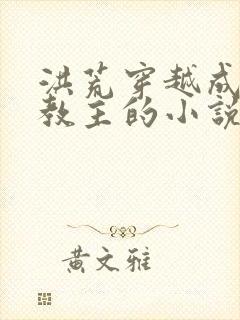 洪荒穿越成
教主的小説
黄文雅